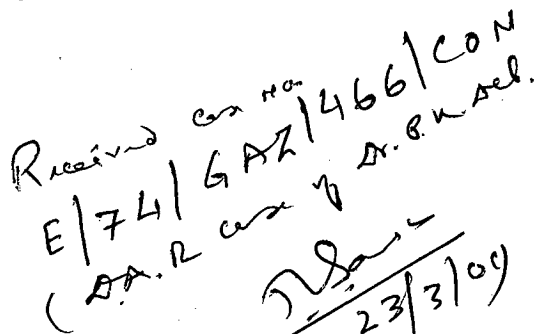 Received case no.
E/74/GAZ/466/CON
(D.A.R case of Dr. B.N.
23/3/09